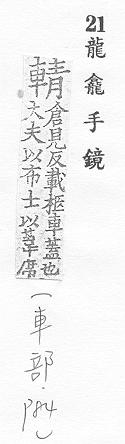 21龍龕手鏡
輤倉見反載柩車蓋也
大夫以布士以葦席
(車部.P84)